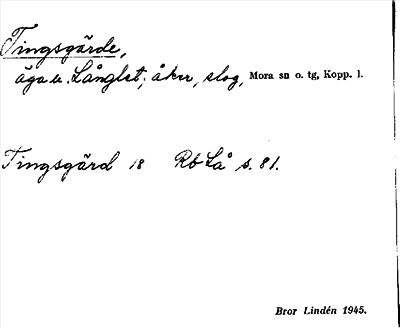 Tingsgärde,
äga u. Långlet; åker, slog, Mora sn o. tg, Kopp. l.
Tingsgärd 18 Rb Lå s. 81.
Bror Lindén 1945.